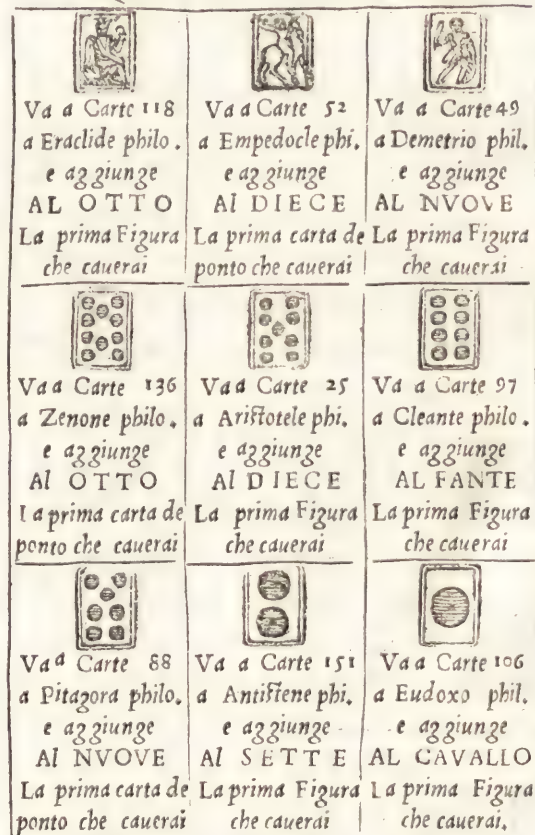 Va a Carte 118
a Eraclide philo.
e aggiunge
AL OTTO
La prima Figura
che cauerai
Va a Carte 52
a Empedocle phi.
e aggiunge
Al DIECE
La prima carta de
ponto che cauerai
Va a Carte 49
a Demetrio phil.
e aggiunge
AL NVOVE
La prima Figura
che cauerai
Va a Carte 136
a Zenone philo.
e aggiunge
Al OTTO
La prima carta de
ponto che cauerai
Va a Carte 25
a Aristotele phi.
e aggiunge
Al DIECE
La prima Figura
che cauerai
Va a Carte 97
a Cleante philo.
e aggiunge
AL FANTE
La prima Figura
che cauerai
Va a Carte 88
a Pitagora philo.
e aggiunge
Al NVOVE
La prima carta de
ponto che cauerai
Va a Carte 151
a Antistene phi.
e aggiunge
Al SETTE
La prima Figura
che cauerai
Va a Carte 106
a Eudoxo phil.
e aggiunge
AL CAVALLO
La prima Figura
che cauerai.